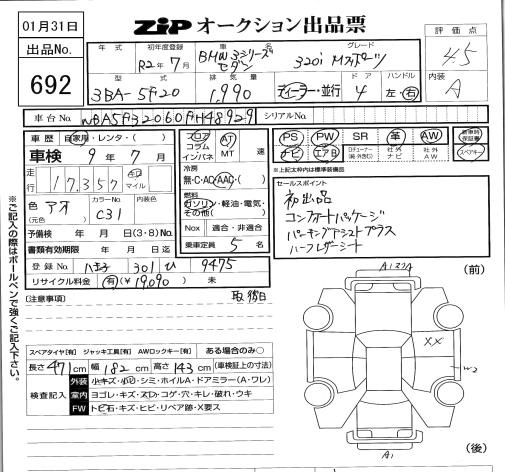 01月31日
ZIP オークション出品票
評価点
4.5
出品No.
692
年式
初年度登録
R2年7月
車名
BMW 3シリーズ セダン
グレード
320i Mスポーツ
内装
A
型式
3BA-5F20
排気量
1,990
ディーラー・並行
ドア
4
ハンドル
左・右
車台No.
WBA5F32060FH48929
シリアルNo.
車歴
自家用・レンタ・( )
車検 9年7月
走行
17,357
km
マイル
色
(元色)
アオ
カラーNo.
C31
内装色
予備検 年 月 日(3・8)No.
書類有効期限 年 月 日迄
登録No. 八王子 301 ひ 9475
リサイクル料金 有(¥19,090) 未
フロア
コラム
インパネ
AT
MT
速
冷房
無・C・AC・AAC・( )
燃料
ガソリン・軽油・電気・
その他( )
Nox 適合・非適合
乗車定員 5 名
PS PW SR 革 AW
標準時
保証書
ナビ エアB
社外
ナビ
社外
AW
スペアキー
※上記太枠内は標準装備品
セールスポイント
初出品
コンフォートパッケージ
パーキングアシストプラス
ハーフレザーシート
※ご記入の際はボールペンで強くご記入下さい。
(注意事項)
取、積日
スペアタイヤ[有] ジャッキ工具[有] AWロックキー[有] ある場合のみ○
長さ 471cm 幅 182cm 高さ 143cm (車検証上の寸法)
検査記入
外装 小キズ・小凹・シミ・ホイルA・ドアミラー(A・ワレ)
室内 ヨゴレ・キズ・スレ・コゲ・穴・キレ・破れ・ウキ
FW トビ石・キズ・ヒビ・リペア跡・X要ス
(前)
XX
W2
A1
(後)